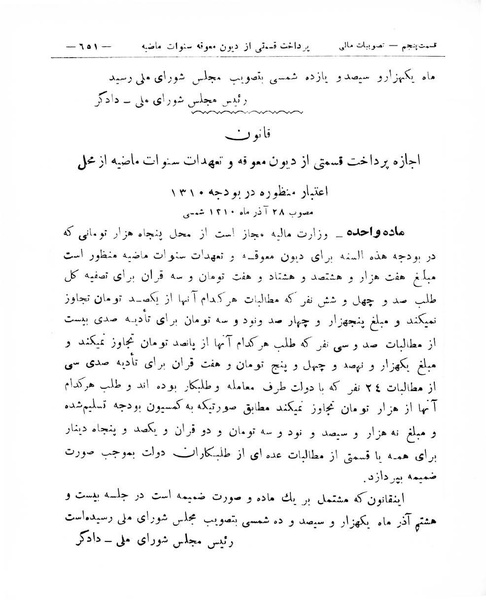 قسمت پنجم — تصویبات مالی پرداخت قسمتی از دیون معوقه سنوات ماضیه — ٦٥١ —
ماه یکهزارو سیصدو یازده شمسی بتصویب مجلس شورای ملی رسید
رئیس مجلس شورای ملی ـ دادگر
قانون
اجازه پرداخت قسمتی از دیون معوقه و تعهدات سنوات ماضیه از محل
اعتبار منظوره در بودجه ١٣١٠
مصوب ٢٨ آذر ماه ١٣١٠ شمسی
ماده واحده ـ وزارت مالیه مجاز است از محل پنجاه هزار تومانی که
در بودجه هذه السنه برای دیون معوقه و تعهدات سنوات ماضیه منظور است
مبلغ هفت هزار و هشتصد و هشتاد و هفت تومان و سه قران برای تصفیه کل
طلب صد و چهل و شش نفر که مطالبات هرکدام آنها از یکصد تومان تجاوز
نمیکند و مبلغ پنجهزار و چهار صد ونود و سه تومان برای تأدیه صدی بیست
از مطالبات صد و سی نفر که طلب هرکدام آنها از پانصد تومان تجاوز نمیکند و
مبلغ یکهزار و نهصد و چهل و پنج تومان و هفت قران برای تأدیه صدی سی
از مطالبات ٢٤ نفر که با دولت طرف معامله و طلبکار بوده اند و طلب هرکدام
آنها از هزار تومان تجاوز نمیکند مطابق صورتیکه به کمسیون بودجه تسلیم شده
و مبلغ نه هزار و سیصد و نود و سه تومان و دو قران و یکصد و پنجاه دینار
برای همه یا قسمتی از مطالبات عده ای از طلبکاران دولت بموجب صورت
ضمیمه بپردازد.
اینقانون که مشتمل بر یك ماده و صورت ضمیمه است در جلسه بیست و
هشتم آذر ماه یکهزار و سیصد و ده شمسی بتصویب مجلس شورای ملی رسیده است
رئیس مجلس شورای ملی ـ دادگر